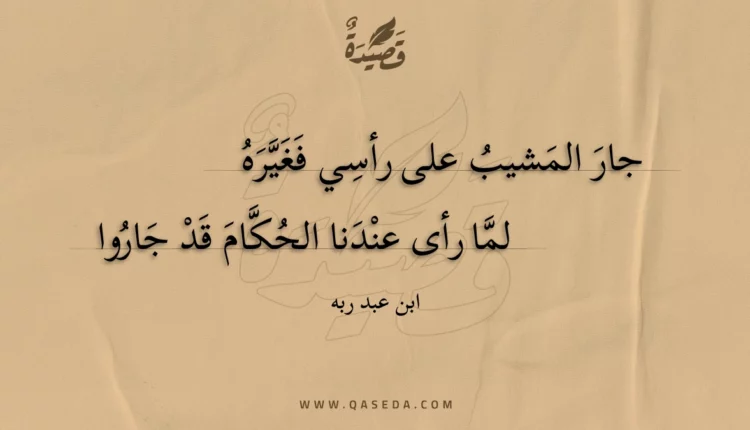 قَصِيدَةٌ
جارَ المَشيبُ على رأسِي فَغَيَّرَهُ
لمَّا رأى عنْدَنا الحُكَّامَ قَدْ جَارُوا
ابن عبد ربه
WWW.QASEDA.COM